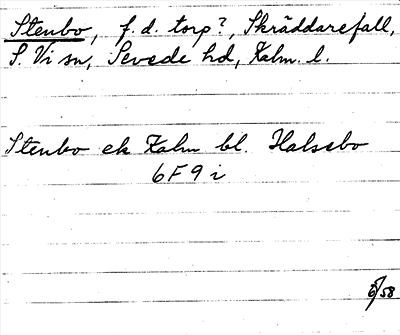 Stenbo, f.d. torp?, Skräddarefall,
S. Vi sn, Sevede hd, Kalm. l.
Stenbo ek Kalm bl. Halssbo
6F9i
58